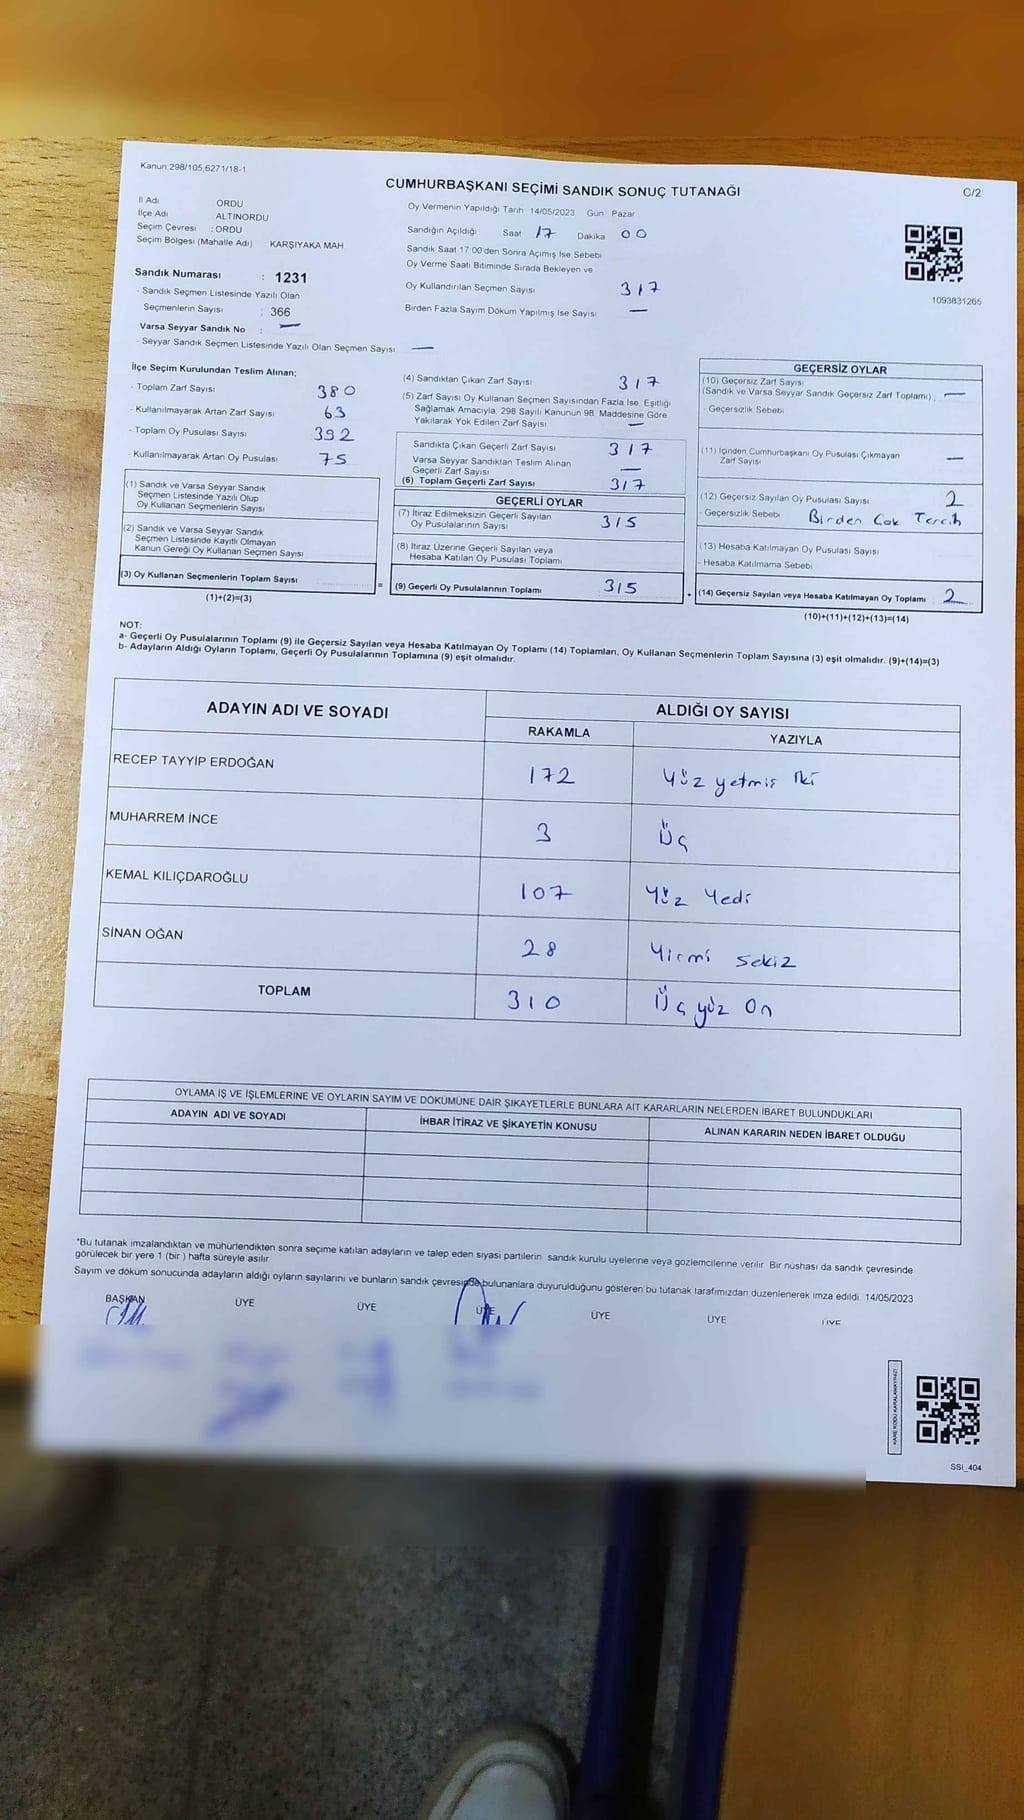 Kanun:298/105;6271/18-1
CUMHURBAŞKANI SEÇİMİ SANDIK SONUÇ TUTANAĞI
C/2
İl Adı ORDU
İlçe Adı ALTINORDU
Seçim Çevresi : ORDU
Seçim Bölgesi (Mahalle Adı) KARŞIYAKA MAH
Sandık Numarası : 1231
- Sandık Seçmen Listesinde Yazılı Olan
Seçmenlerin Sayısı : 366
Varsa Seyyar Sandık No : —
- Seyyar Sandık Seçmen Listesinde Yazılı Olan Seçmen Sayısı —
Oy Vermenin Yapıldığı Tarih 14/05/2023 Gün Pazar
Sandığın Açıldığı Saat 17 Dakika 00
Sandık Saat 17:00'den Sonra Açımış İse Sebebi
Oy Verme Saati Bitiminde Sırada Bekleyen ve
Oy Kullandırılan Seçmen Sayısı 317
Birden Fazla Sayım Döküm Yapılmış İse Sayısı —
1093831265
İlçe Seçim Kurulundan Teslim Alınan;
- Toplam Zarf Sayısı 380
- Kullanılmayarak Artan Zarf Sayısı 63
- Toplam Oy Pusulası Sayısı 392
- Kullanılmayarak Artan Oy Pusulası 75
(1) Sandık ve Varsa Seyyar Sandık
Seçmen Listesinde Yazılı Olup
Oy Kullanan Seçmenlerin Sayısı
(2) Sandık ve Varsa Seyyar Sandık
Seçmen Listesinde Kayıtlı Olmayan
Kanun Gereği Oy Kullanan Seçmen Sayısı
(3) Oy Kullanan Seçmenlerin Toplam Sayısı
(1)+(2)=(3)
=
(4) Sandıktan Çıkan Zarf Sayısı 317
(5) Zarf Sayısı Oy Kullanan Seçmen Sayısından Fazla İse, Eşitliği
Sağlamak Amacıyla, 298 Sayılı Kanunun 98. Maddesine Göre
Yakılarak Yok Edilen Zarf Sayısı —
Sandıkta Çıkan Geçerli Zarf Sayısı 317
Varsa Seyyar Sandıktan Teslim Alınan
Geçerli Zarf Sayısı —
(6) Toplam Geçerli Zarf Sayısı 317
GEÇERLİ OYLAR
(7) İtiraz Edilmeksizin Geçerli Sayılan
Oy Pusulalarının Sayısı 315
(8) İtiraz Üzerine Geçerli Sayılan veya
Hesaba Katılan Oy Pusulası Toplamı
(9) Geçerli Oy Pusulalarının Toplamı 315
+
GEÇERSİZ OYLAR
(10) Geçersiz Zarf Sayısı
(Sandık ve Varsa Seyyar Sandık Geçersiz Zarf Toplamı) —
- Geçersizlik Sebebi
(11) İçinden Cumhurbaşkanı Oy Pusulası Çıkmayan
Zarf Sayısı —
(12) Geçersiz Sayılan Oy Pusulası Sayısı 2
- Geçersizlik Sebebi Birden Çok Tercih
(13) Hesaba Katılmayan Oy Pusulası Sayısı
- Hesaba Katılmama Sebebi
(14) Geçersiz Sayılan veya Hesaba Katılmayan Oy Toplamı : 2
(10)+(11)+(12)+(13)=(14)
NOT:
a- Geçerli Oy Pusulalarının Toplamı (9) ile Geçersiz Sayılan veya Hesaba Katılmayan Oy Toplamı (14) Toplamları, Oy Kullanan Seçmenlerin Toplam Sayısına (3) eşit olmalıdır. (9)+(14)=(3)
b- Adayların Aldığı Oyların Toplamı, Geçerli Oy Pusulalarının Toplamına (9) eşit olmalıdır.
ADAYIN ADI VE SOYADI ALDIĞI OY SAYISI
RAKAMLA YAZIYLA
RECEP TAYYİP ERDOĞAN 172 Yüz yetmiş iki
MUHARREM İNCE 3 Üç
KEMAL KILIÇDAROĞLU 107 Yüz Yedi
SİNAN OĞAN 28 Yirmi Sekiz
TOPLAM 310 Üç yüz On
OYLAMA İŞ VE İŞLEMLERİNE VE OYLARIN SAYIM VE DÖKÜMÜNE DAİR ŞİKAYETLERLE BUNLARA AİT KARARLARIN NELERDEN İBARET BULUNDUKLARI
ADAYIN ADI VE SOYADI İHBAR İTİRAZ VE ŞİKAYETİN KONUSU ALINAN KARARIN NEDEN İBARET OLDUĞU
*Bu tutanak imzalandıktan ve mühürlendikten sonra seçime katılan adayların ve talep eden siyasi partilerin sandık kurulu üyelerine veya gözlemcilerine verilir. Bir nüshası da sandık çevresinde
görülecek bir yere 1 (bir) hafta süreyle asılır
Sayım ve döküm sonucunda adayların aldığı oyların sayılarını ve bunların sandık çevresinde bulunanlara duyurulduğunu gösteren bu tutanak tarafımızdan düzenlenerek imza edildi. 14/05/2023
BAŞKAN ÜYE ÜYE ÜYE ÜYE ÜYE ÜYE
KARE KODU KARALAMAYINIZ!
SSI_404